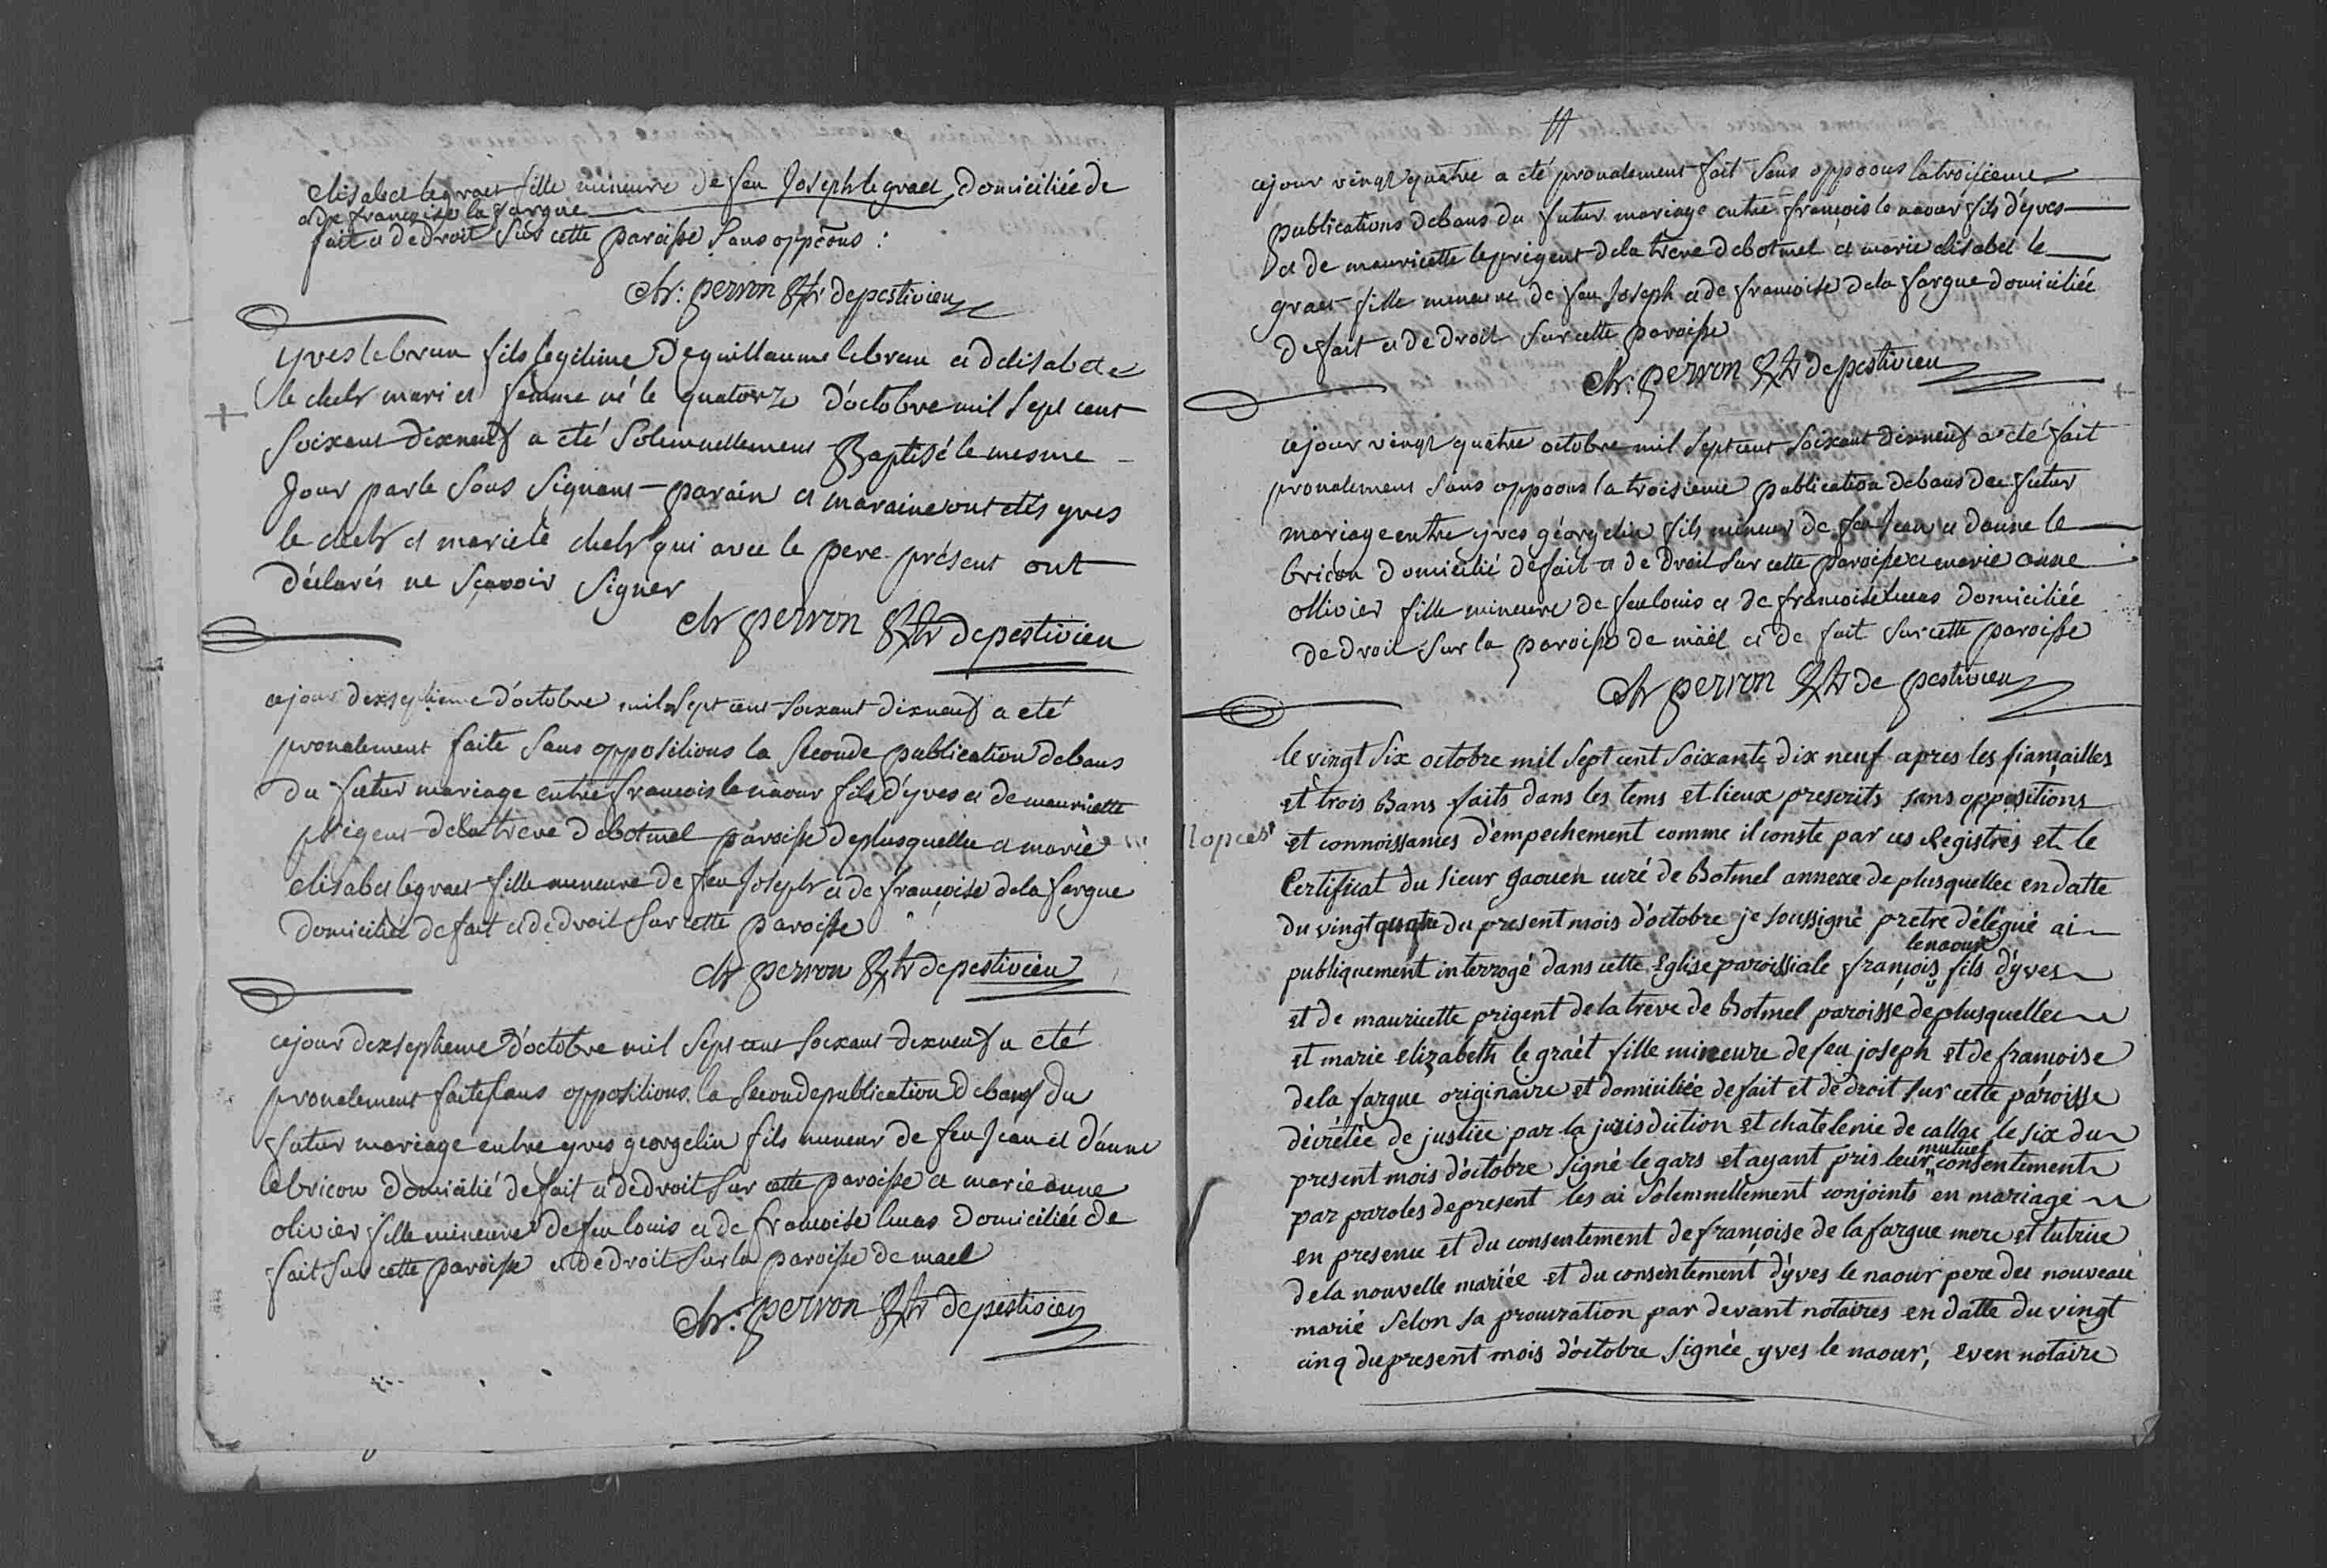 elisabet le graet fille mineure de feu Joseph le graet, domiciliée de
et de françoise la fargue
fait et de droit sur cette paroisse sans oppõons :
chr: perron de pestivien
yves le brun fils legitime de guillaume le brun et delisabet
le chelr mari et femme né le quatorze d'octobre mil sept cent
soixant dixneuf a eté solemnellement Baptisé le mesme
Jour par le sous signant parain et maraine ont etés yves
le chelr et marie le chelr qui avec le pere présent ont
déclarés ne sçavoir signer
chr perron de pestivien
cejour dixseptieme d'octobre mil sept cent soixant dixneuf a eté
pronalement faite sans oppositions la seconde publication de bans
du futur mariage entre françois le naour fils d'yves et de mauricette
prigent de la treve de botmel paroisse de plusquellec et marie
elisabet le graet fille mineure de feu Joseph et de françoise de la fargue
domiciliée de fait et de droit sur cette paroisse
chr perron de pestivien
cejour dixseptieme d'octobre mil sept cent soixant dixneuf a eté
pronalement faite sans oppositions la seconde publication de bans du
futur mariage entre yves georgelin fils mineur de feu Jean et d'anne
le bricon domicilié de fait et de droit sur cette paroisse et marie anne
olivier fille mineure de feu louis et de francoise lucas domiciliée de
fait sur cette paroisse et de droit sur la paroisse de mael
chr: perron de pestivien
11
cejour vingt quatre a eté pronalement fait sans oppoons la troisieme
publications de bans du futur mariage entre françois le naour fils d'yves
et de mauricette le prigent de la treve de botmel et marie elisabet le
graet fille mineure de feu Joseph et de francoise de la fargue domiciliée
de fait et de droit sur cette paroisse
chr: perron de pestivien
cejour vingt quatre octobre mil sept cent soixant dixneuf a eté fait
pronalement sans oppoons la troisieme publication de bans du futur
mariage entre yves géorgelin fils mineur de feu Jean et d'anne le
bricon domicilié de fait et de droit sur cette paroisse et marie anne
ollivier fille mineure de feu louis et de francoise lucas domiciliée
de droit sur la paroisse de mäel et de fait sur cette paroisse
chr perron de pestivien
le vingt six octobre mil sept cent soixante dix neuf apres les fiançailles
et trois Bans faits dans les tems et lieux prescrits sans oppositions
et connoissances d'empechement comme il conste par ces Registres et le
Certificat du sieur gaouen curé de Botmel annexe de plusquellec en datte
du vingt quatre du present mois d'octobre je soussigné pretre délegué ai
le naour
publiquement interrogé dans cette Eglise paroissiale françois fils d'yves
et de mauricette prigent de la trève de Botmel paroisse de plusquellec
et marie elizabeth le graèt fille mineure de feu joseph et de françoise
de la fargue originaire et domiciliée de fait et de droit sur cette paroisse
décrétée de justice par la jurisdiction et chatelenie de callac le six du
mutuel
present mois d'octobre signé le gars et ayant pris leur consentement
par paroles de present les ai solemnellement conjoints en mariage
en presence et du consentement de françoise de la fargue mere et tutrice
de la nouvelle mariée et du consentement d'yves le naour pere du nouveau
marié selon sa procuration par devant notaires en datte du vingt
cinq du present mois d'octobre signée yves le naour, Even notaire